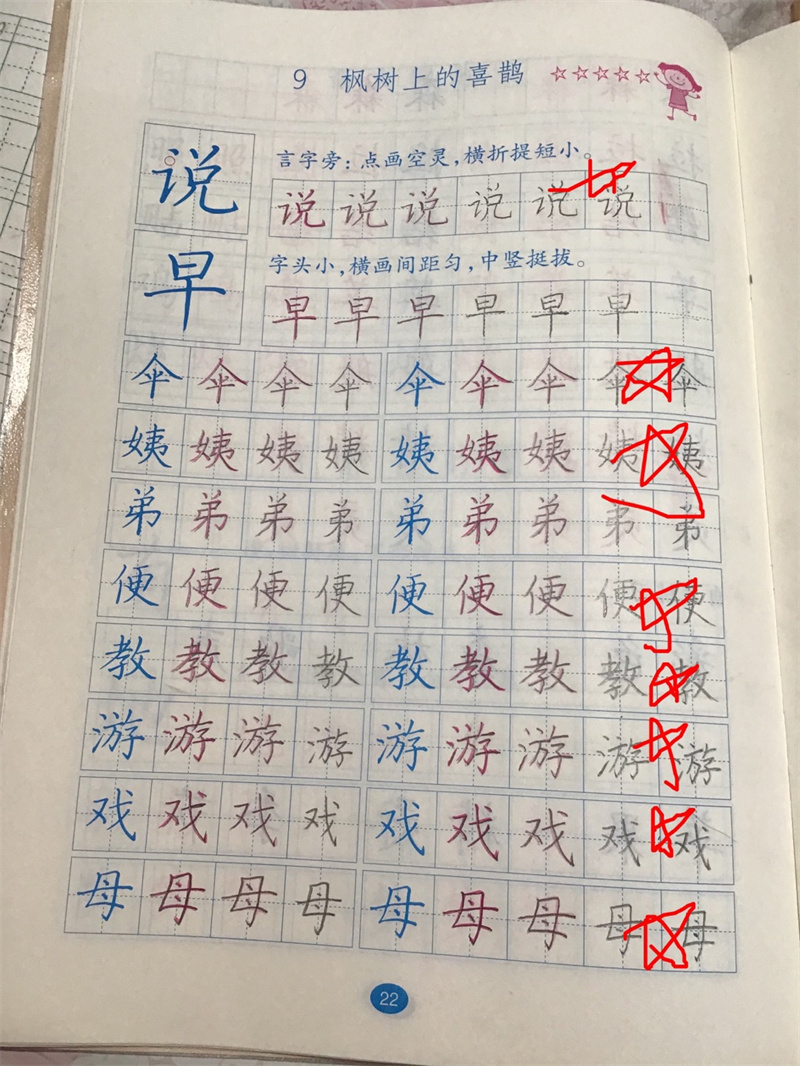 9 枫树上的喜鹊 ☆☆☆☆☆
说
言字旁:点画空灵,横折提短小。
说 说 说 说 说 说
早
字头小,横画间距匀,中竖挺拔。
早 早 早 早 早 早
伞 伞 伞 伞 伞 伞 伞 伞 伞
姨 姨 姨 姨 姨 姨 姨 姨 姨
弟 弟 弟 弟 弟 弟 弟 弟 弟
便 便 便 便 便 便 便 便 便
教 教 教 教 教 教 教 教 教
游 游 游 游 游 游 游 游 游
戏 戏 戏 戏 戏 戏 戏 戏 戏
母 母 母 母 母 母 母 母 母
22